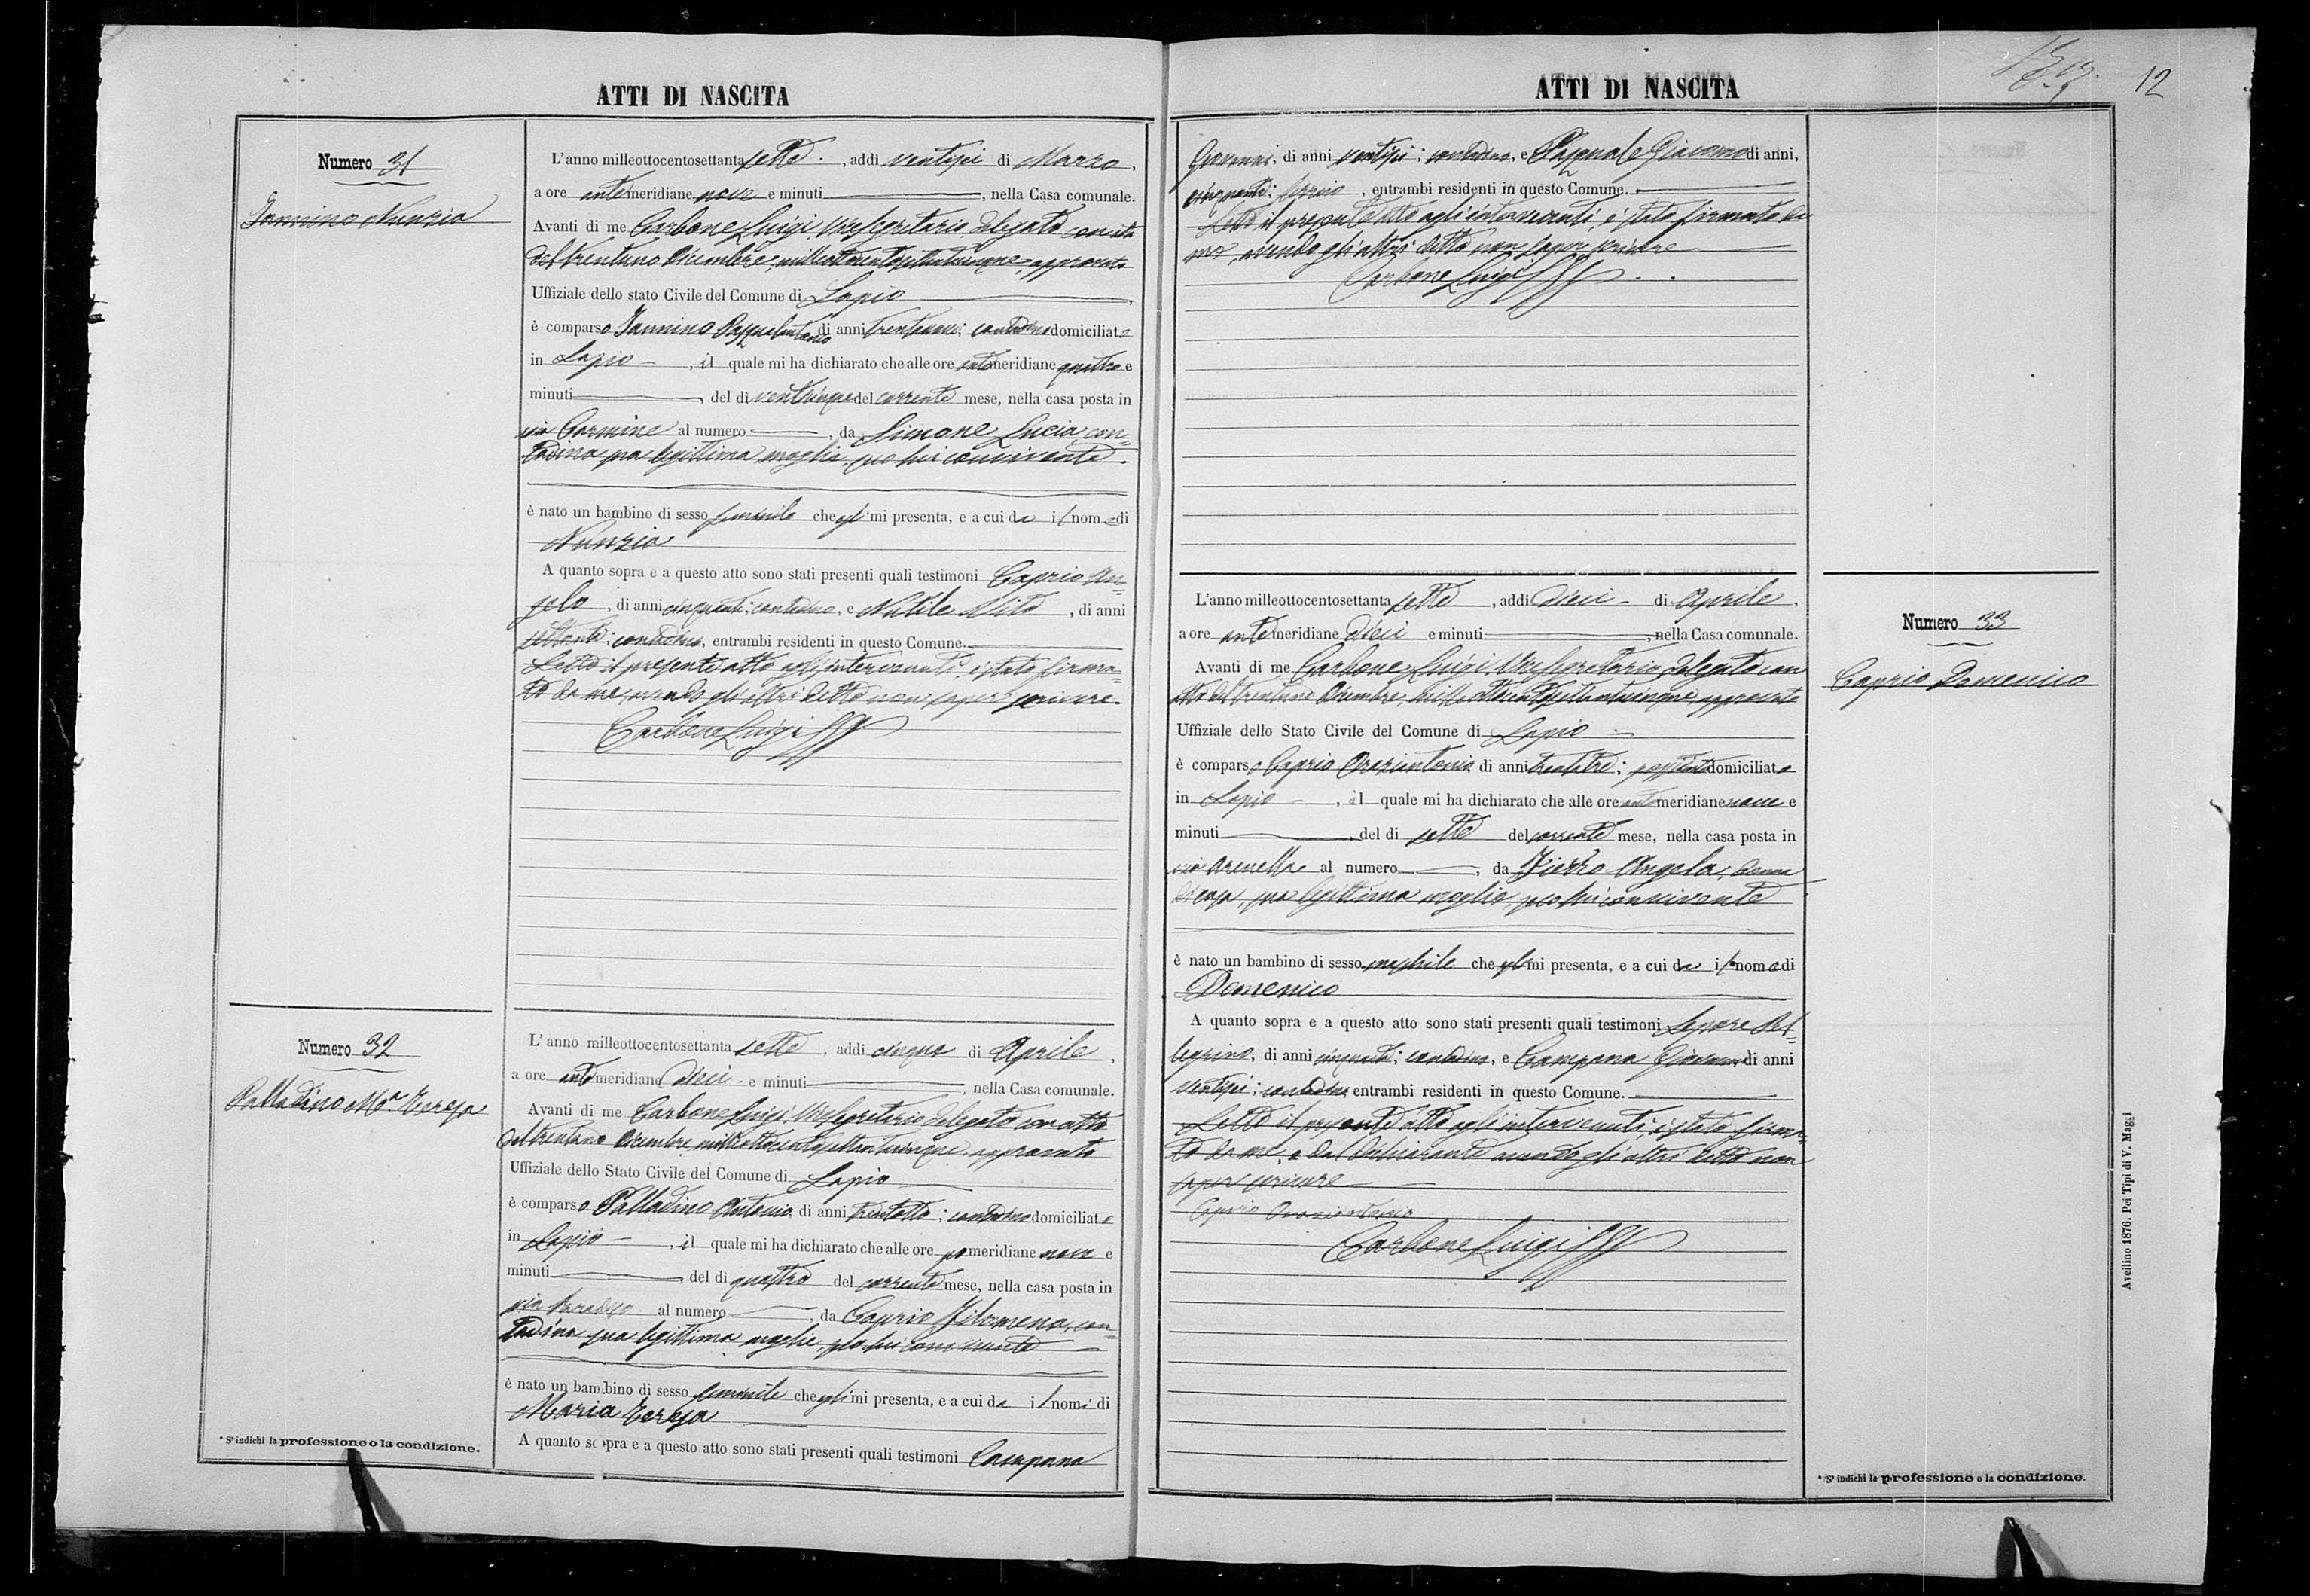 ATTI DI NASCITA
Numero 31
Iannino Nunzia
L'anno milleottocentosettantasette, addi ventisei di Marzo,
a ore antemeridiane nove e minuti, nella Casa comunale.
Avanti di me Carbone Luigi, Vicesegretario delegato con atto
del trentuno Dicembre, milleottocentosettantacinque, approvato
Uffiziale dello stato Civile del Comune di Lapio
è comparso Iannino Pasqualantonio di anni; contadino domiciliato
in Lapio, il quale mi ha dichiarato che alle ore antemeridiane quattro e
minuti, del dì venticinque del corrente mese, nella casa posta in
via Carmine al numero, da Simone Lucia, con=
tadina sua legittima moglie, seco lui convivente.
è nato un bambino di sesso femminile che egli mi presenta, e a cui da il nome di
Nunzia
A quanto sopra e a questo atto sono stati presenti quali testimoni Caprio An=
gelo, di anni cinquanta; contadino, e Nutile Vito, di anni
settanta; contadino, entrambi residenti in questo Comune.
Letto il presente atto agli intervenuti, è stato firma=
to da me, avendo gli altri detto non sapere scrivere.
Carbone Luigi
Numero 32
Palladino Mª Teresa
L'anno milleottocentosettantasette, addi cinque di Aprile,
a ore antemeridiane dieci e minuti, nella Casa comunale.
Avanti di me Carbone Luigi, Vicesegretario delegato con atto
del trentuno Dicembre milleottocentosettantacinque, approvato
Uffiziale dello Stato Civile del Comune di Lapio
è comparso Palladino Antonio, di anni trentotto; contadino domiciliato
in Lapio, il quale mi ha dichiarato che alle ore pomeridiane nove e
minuti, del dì quattro del corrente mese, nella casa posta in
via al numero, da Caprio Filomena, con=
tadina sua legittima moglie, seco lui convivente
è nato un bambino di sesso femminile che egli mi presenta, e a cui da il nome di
Maria Teresa
A quanto sopra e a questo atto sono stati presenti quali testimoni Campana
* S'indichi la professione o la condizione.
ATTI DI NASCITA
12
Giovanni, di anni ventisei; contadino, e Pasquale Giacomo di anni,
cinquanta;, entrambi residenti in questo Comune.
Letto il presente atto agli intervenuti, è stato firmato da
me, avendo gli altri detto non sapere scrivere
Carbone Luigi
Numero 33
Caprio Domenico
L'anno milleottocentosettantasette, addi dieci di Aprile,
a ore antemeridiane dieci e minuti, nella Casa comunale.
Avanti di me Carbone Luigi, Vicesegretario, delegato con
atto del trentuno Dicembre, milleottocentosettantacinque, approvato
Uffiziale dello Stato Civile del Comune di Lapio
è comparso Caprio Oraziantonio di anni trentatre; possidente domiciliato
in Lapio, il quale mi ha dichiarato che alle ore antemeridiane nove e
minuti, del dì sette del corrente mese, nella casa posta in
via Arenella al numero, da Fierro Angela, donna
di casa, sua legittima moglie, seco lui convivente
è nato un bambino di sesso maschile che egli mi presenta, e a cui da il nome di
Domenico
A quanto sopra e a questo atto sono stati presenti quali testimoni Lepore Pel=
legrino, di anni cinquanta; contadino, e Campana Giovanni di anni
ventisei; contadino entrambi residenti in questo Comune.
Letto il presente atto agli intervenuti, è stato firma=
to da me, e dal dichiarante avendo gli altri detto non
sapere scrivere
Caprio Oraziantonio
Carbone Luigi
* S'indichi la professione o la condizione.
Avellino 1876. Pei Tipi di V. Maggi